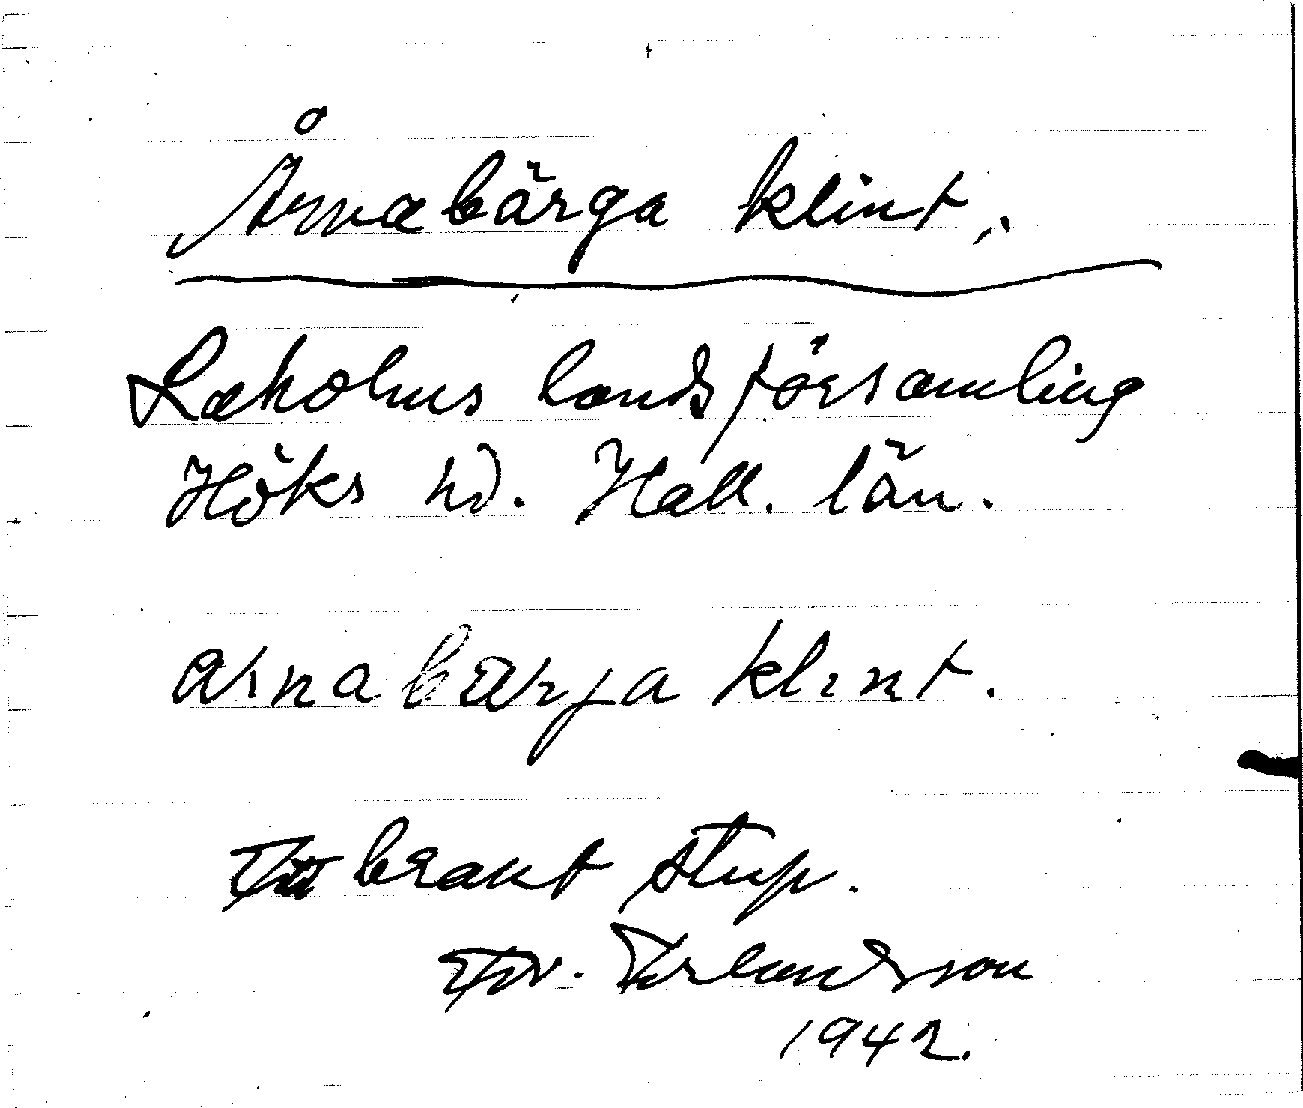 Årnabärga klint.
Laholms landsförsamling
Höks hd. Hall. län.
arnabærja klint.
Ett brant stup.
Erlandsson
1942.